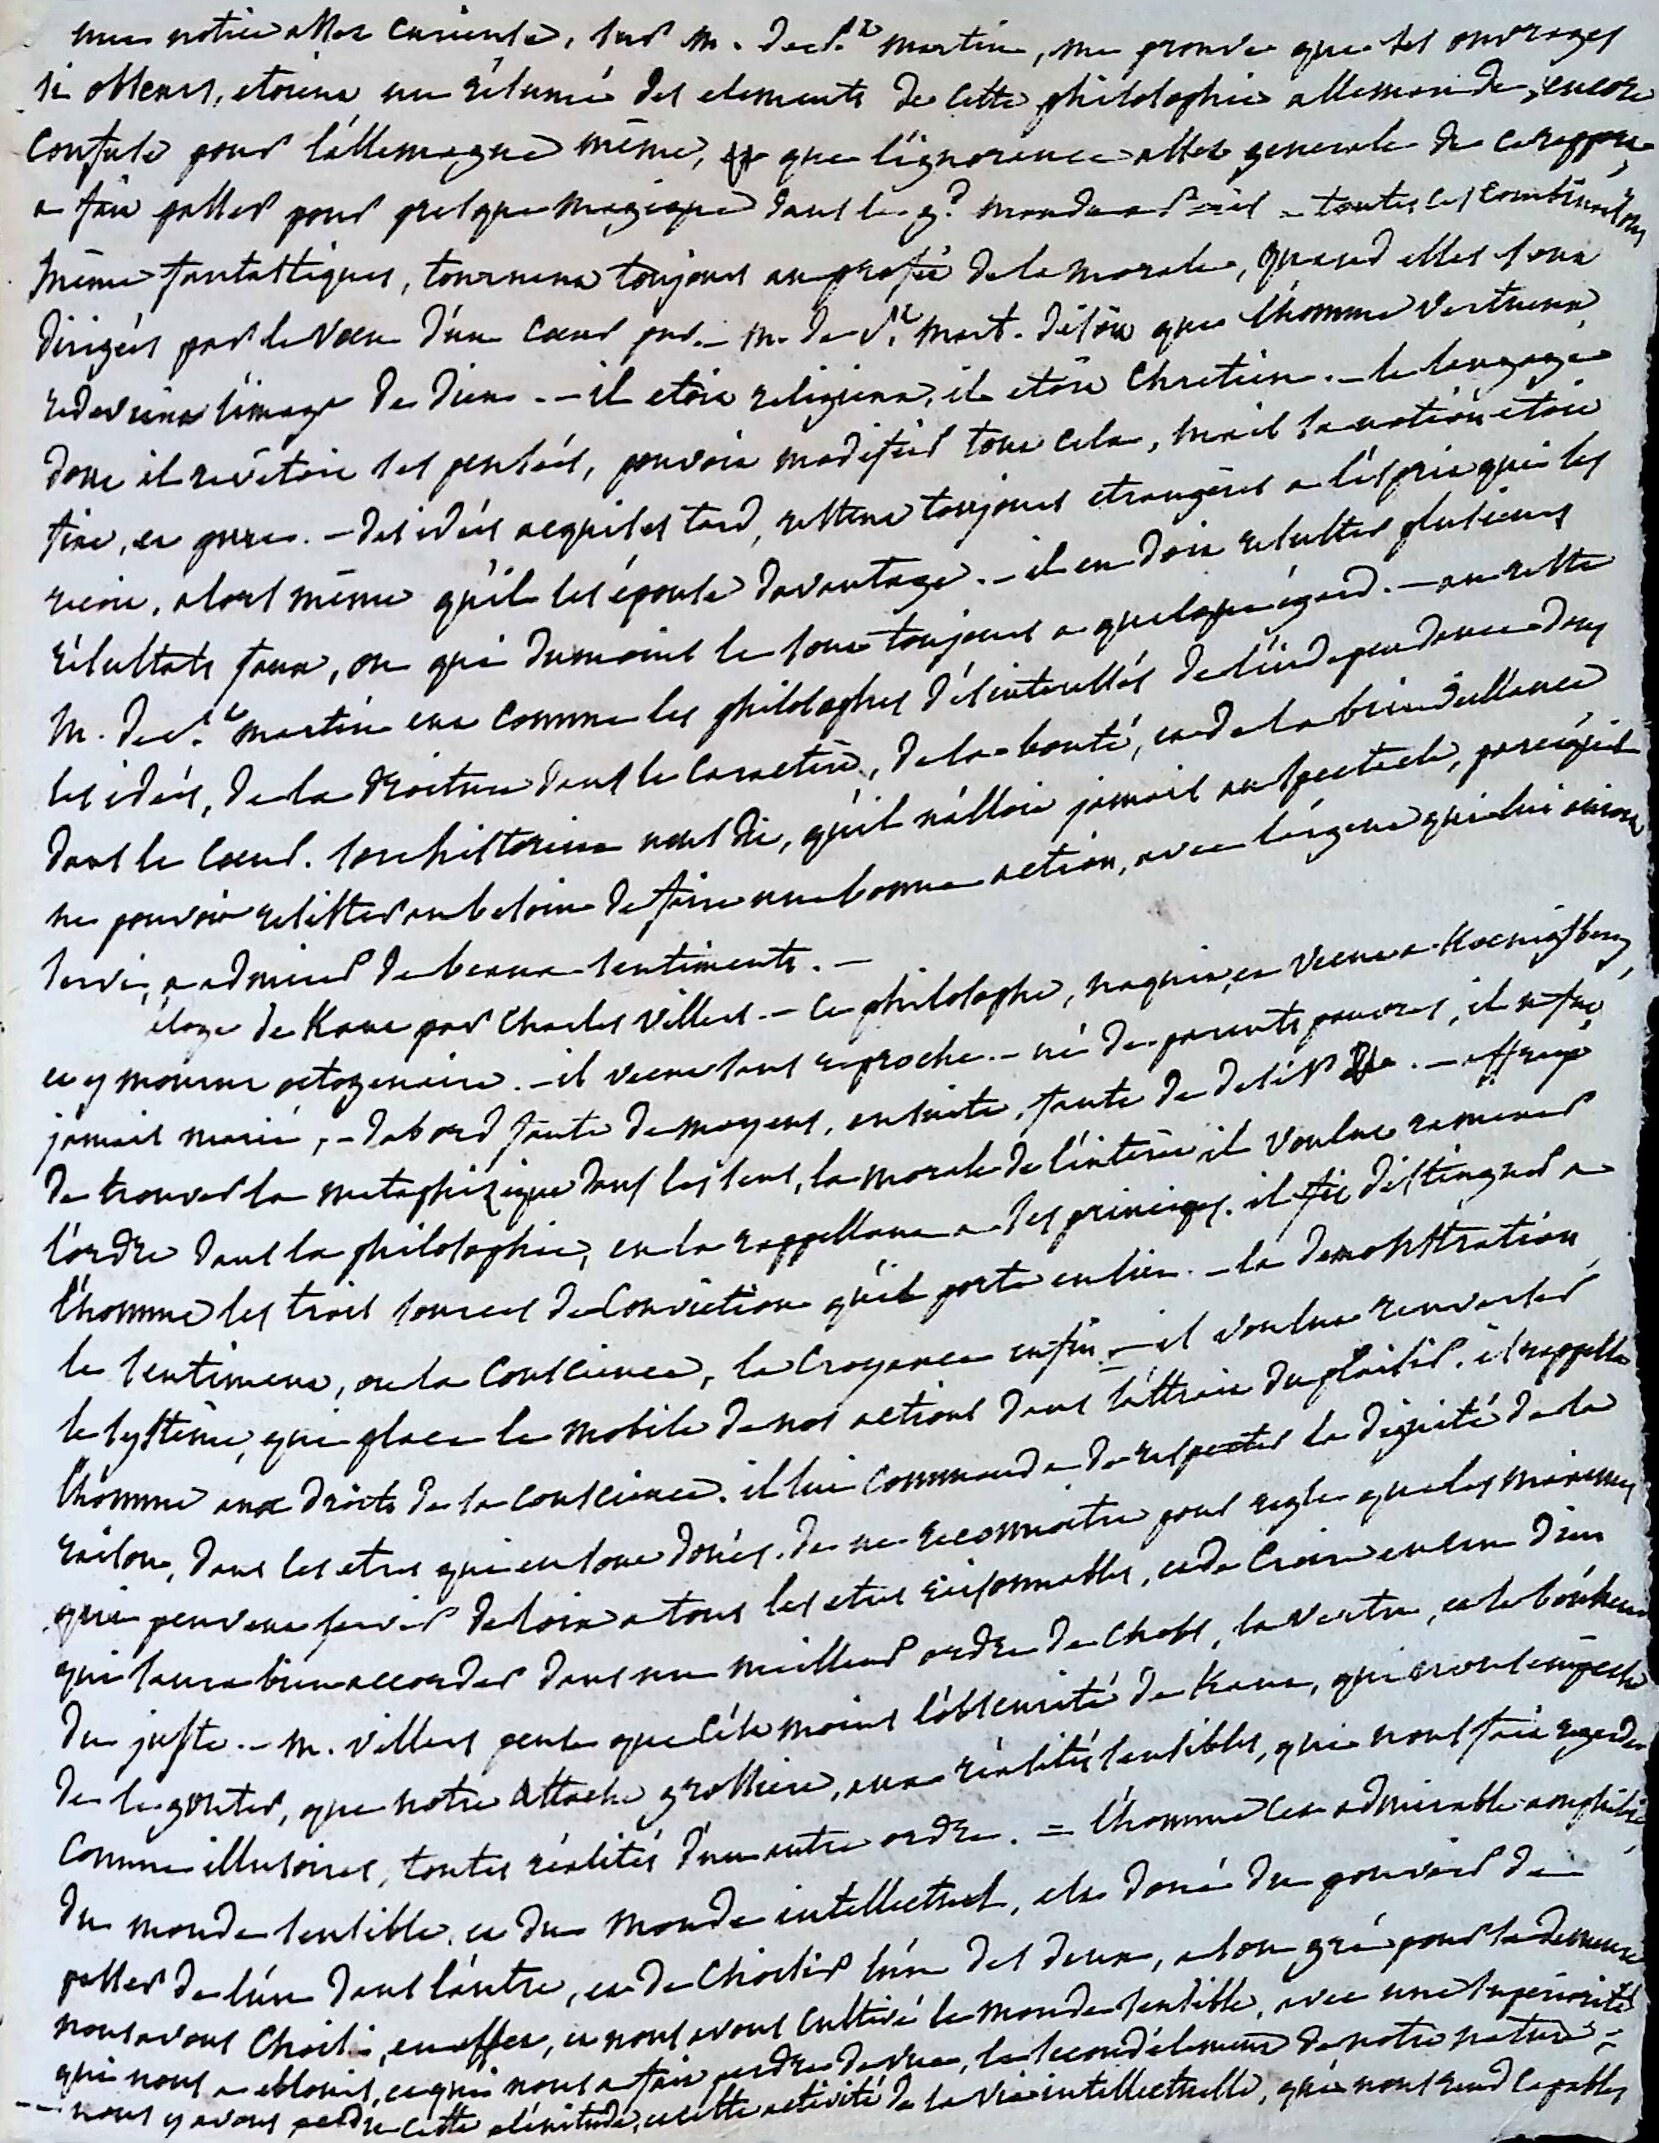 une notice assez curieuse, sur m. de St martin, me prouve que ses ouvrages
si obscurs, etoient un résumé des elements de cette philosophie allemande, encore
confuse pour l'allemagne même, et que l'ignorance assez generale de ce rapport
a fait passer pour presque magique dans le gd monde a Paris = toutes les combinaisons
même fantastiques, tournent toujours au profit de la morale, quand elles sont
dirigées par le vœu d'un cœur pur. – m. de St mart. disoit que l'homme vertueux
redevient l'image de dieu. – il etoit religieux, il etoit chretien. – le langage
dont il revêtoit ses pensées, pouvoit modifier tout cela, mais la notion etoit
fixe, et pure. – des idées acquises tard, restent toujours etrangères a l'esprit qui les
reçoit, alors même qu'il les épouse davantage. – il en doit resulter plusieurs
résultats faux, ou qui du moins le sont toujours a quelque égard. – au reste
M. de St martin eut comme les philosophes désinteressés de l'independance dans
les idées, de la droiture dans le caractère, de la bonté, et de la bienveillance
dans le cœur. son historien nous dit, qu'il n'alloit jamais au spectacle, parce qu'il
ne pouvoit resister au besoin de faire une bonne action, avec l'argent qui lui auroit
servi, a admirer de beaux sentiments. –
éloge de Kant par Charles Villers – ce philosophe, naquit, et vecut a Kœnigsberg,
et y mourut octogenaire. – il vecut sans reproche. – né de parents pauvres, il ne fut
jamais marié, – dabord faute de moyens, ensuite, faute de desir. – effrayé
de trouver la metaphizique dans les sens, la morale de l'intérêt il voulut ramener
l'ordre dans la philosophie, en la rappellant a ses principes. il fit distinguer a
l'homme les trois sources de conviction qu'il porte en lui. – la demonstration,
le sentiment, ou la conscience, la croyance enfin – il voulut renverser
le système, qui place le mobile de nos actions dans l'attrait du plaisir. il rappella
l'homme aux droits de la conscience. il lui commanda de respecter la dignité de la
raison, dans les etres qui en sont doués. de ne reconnoitre pour regle que les maximes
qui peuvent servir de loix a tous les etres raisonnables, et de croire en un dieu
qui saura bien accorder dans un meilleur ordre de choses, la vertu, et le bonheur
du juste. – m. villers pense que c'est moins l'obscurité de Kant, qui a voulu empêcher
de le gouter, que notre attache grossiere, aux réalités sensibles, qui nous fait regarder
comme illusoires, toutes réalités d'un autre ordre. = l'homme cet admirable amphibie,
du monde sensible, et du monde intellectuel, est doué du pouvoir de
passer de l'un dans l'autre, et de choisir l'un des deux, a son gré pour sa demeure
nous avons choisi, en effet, et nous avons cultivé le monde sensible, avec une superiorité
qui nous a eblouis, et qui nous a fait perdre de vue, le second élément de notre nature =
-- nous y avons perdu cette plénitude, et cette activité de la vie intellectuelle, qui nous rend capables